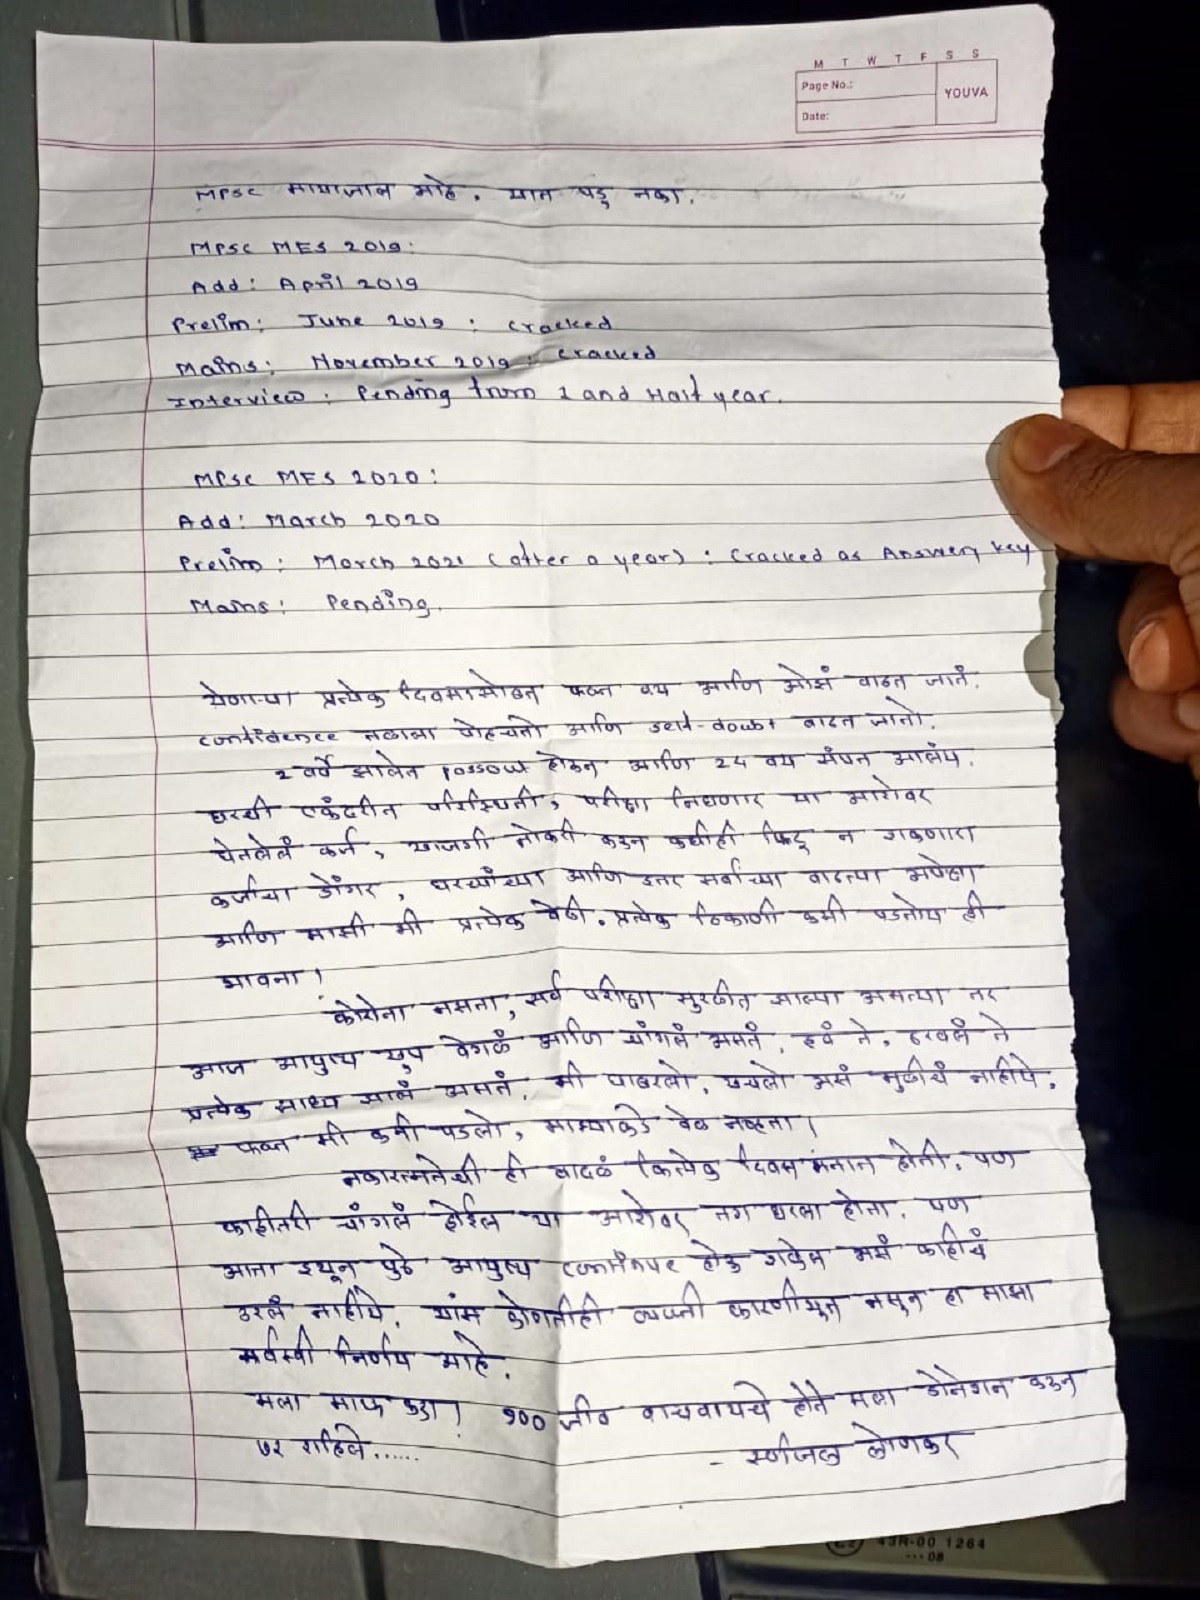 M T W T F S S
Page No.:
YOUVA
Date:
MPSC मायाजाल आहे. यात पडू नका.
MPSC MES 2019:
Add: April 2019
Prelim: June 2019 : cracked
Mains: November 2019 : cracked
Interview : Pending from 1 and Half year.
MPSC MES 2020:
Add: March 2020
Prelim: March 2021 (after a year) : Cracked as Answery key
Mains: Pending.
येणाऱ्या प्रत्येक दिवसासोबत फक्त वय आणि ओझं वाढत जातं.
confidence तळाला पोहचतो आणि self-doubt वाढत जातो.
2 वर्षे झालेत passout होऊन आणि 24 वय संपत आलंय.
घरची एकंदरीत परिस्थिती, परीक्षा निघणार या आशेवर
घेतलेलं कर्ज, खाजगी नोकरी करून कधीही फिटू न शकणारा
कर्जाचा डोंगर, घरच्यांच्या आणि इतर सर्वांच्या वाढत्या अपेक्षा
आणि माझी मी प्रत्येक वेळी. प्रत्येक ठिकाणी कमी पडतोय ही
भावना!
कोरोना नसता, सर्व परीक्षा सुरळीत झाल्या असत्या तर
आज आयुष्य खूप वेगळं आणि चांगलं असतं. हवं ते. ठरवलं ते
प्रत्येक साध्य झालं असतं. मी घाबरलो. खचलो असं मुळीचं नाहीये.
फक्त मी कमी पडलो, माझ्याकडे वेळ नव्हता!
नकारात्मतेची ही वादळं कित्येक दिवस मनात होती. पण
काहीतरी चांगलं होईल या आशेवर तग धरला होता. पण
आता इथून पुढे आयुष्य continue होऊ शकेल असं काहीचं
उरलं नाहीये. यांस कोणतीही व्यक्ती कारणीभूत नसून हा माझा
सर्वस्वी निर्णय आहे.
मला माफ करा! १०० जीव वाचवायचे होते मला डोनेशन करून
७२ राहिले......
- स्वप्नील लोणकर
43R-00 1264
08